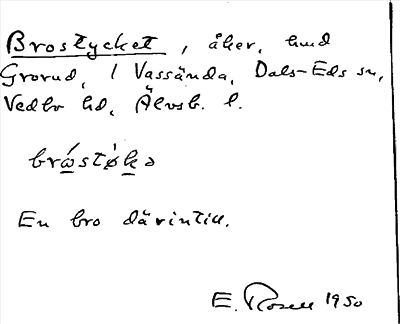 Brostycket, åker, hmd
Grorud, 1 Vassända, Dals-Eds sn,
Vedbo hd, Älvsb. l.
brώ̲stø̀k̲ə
En bro därintill.
E. Rosell 1950